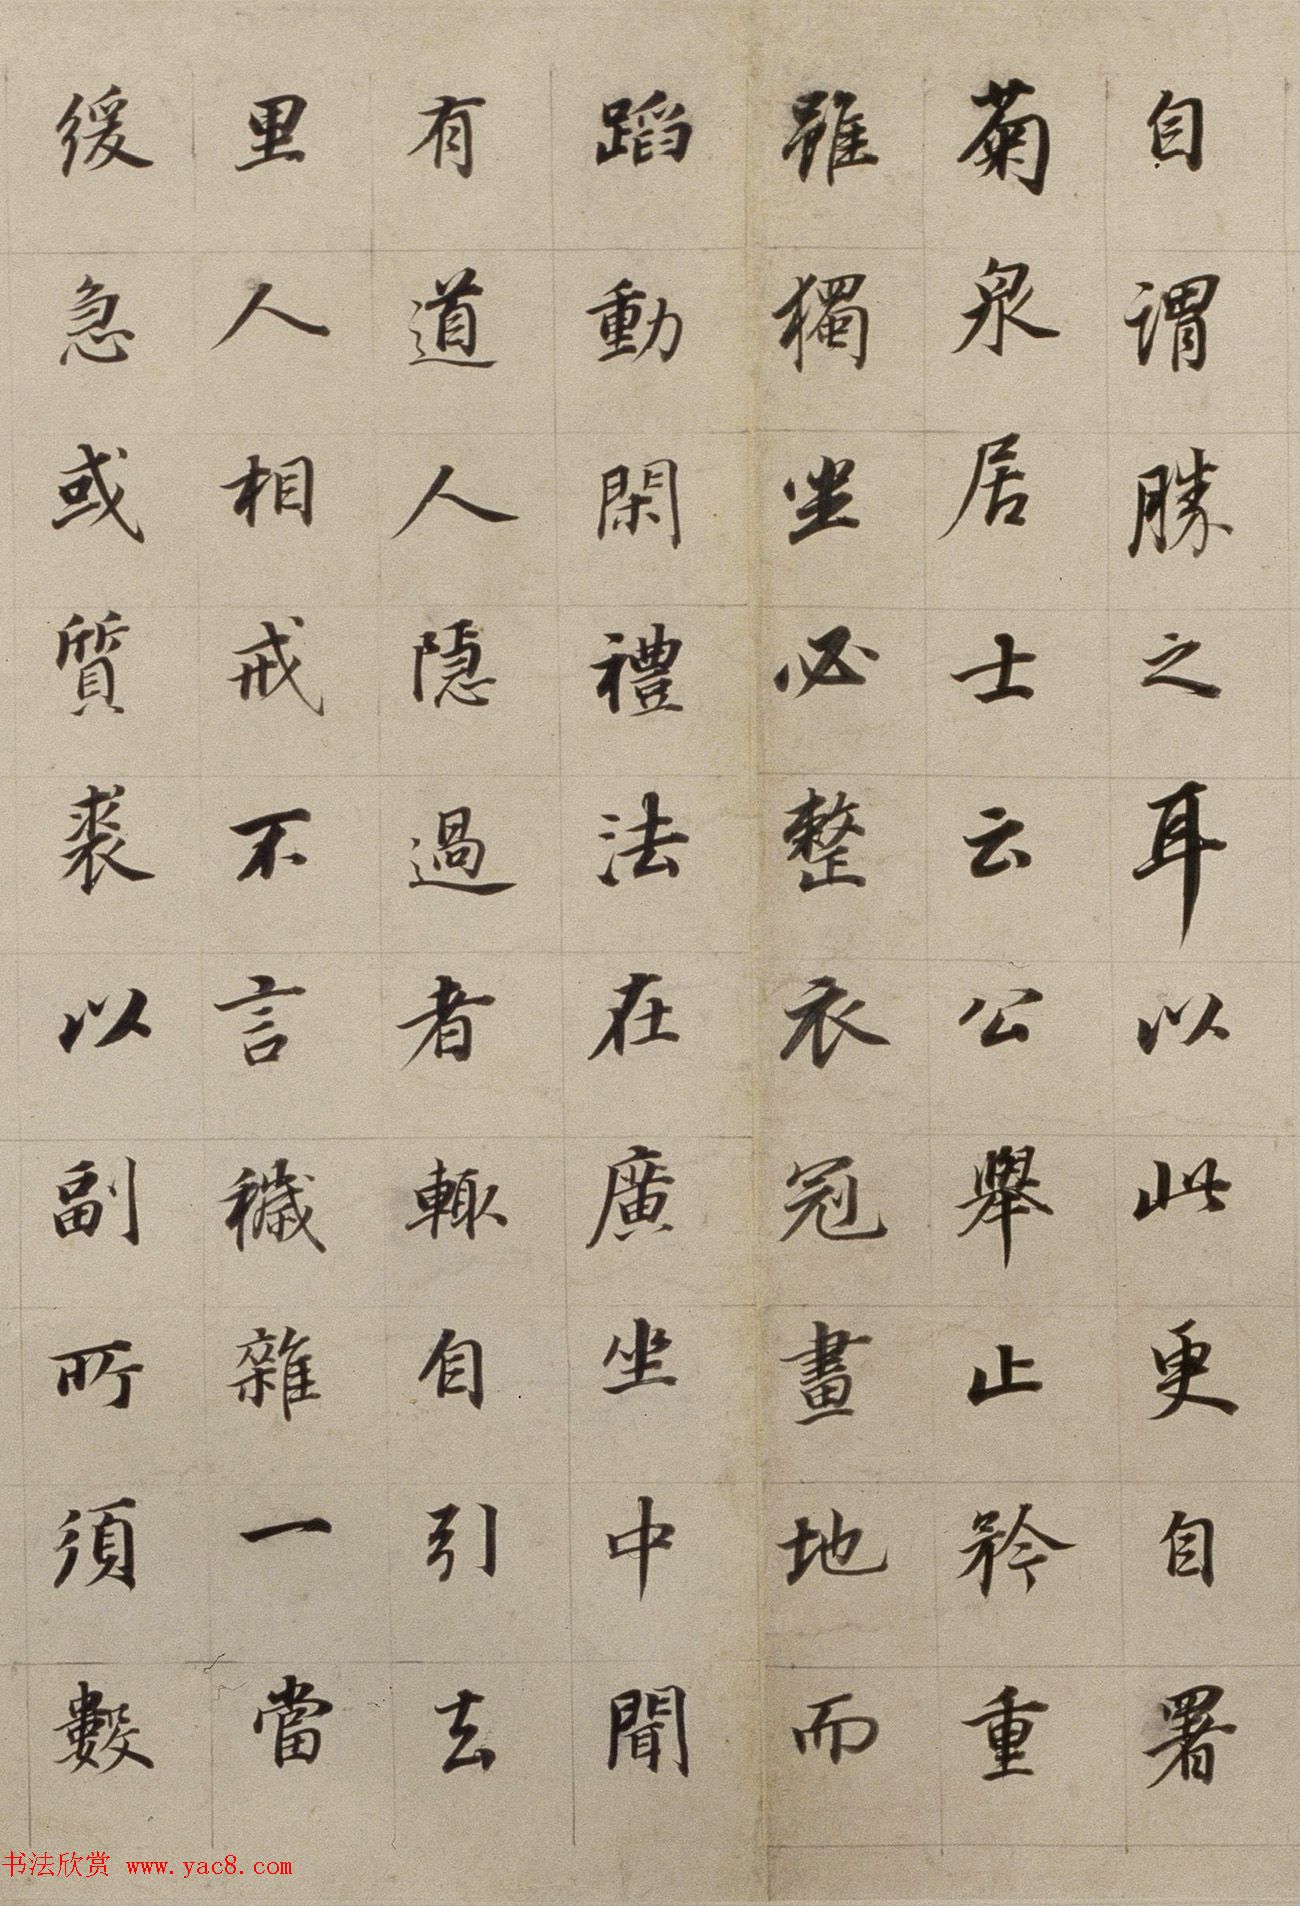 自謂勝之耳以此更自署
菊泉居士云公舉止矜重
雖獨坐必整衣冠畫地而
蹈動閑禮法在廣坐中聞
有道人隱過者輒自引去
里人相戒不言穢雜一當
緩急或質裘以副所須數
书法欣赏 www.yac8.com